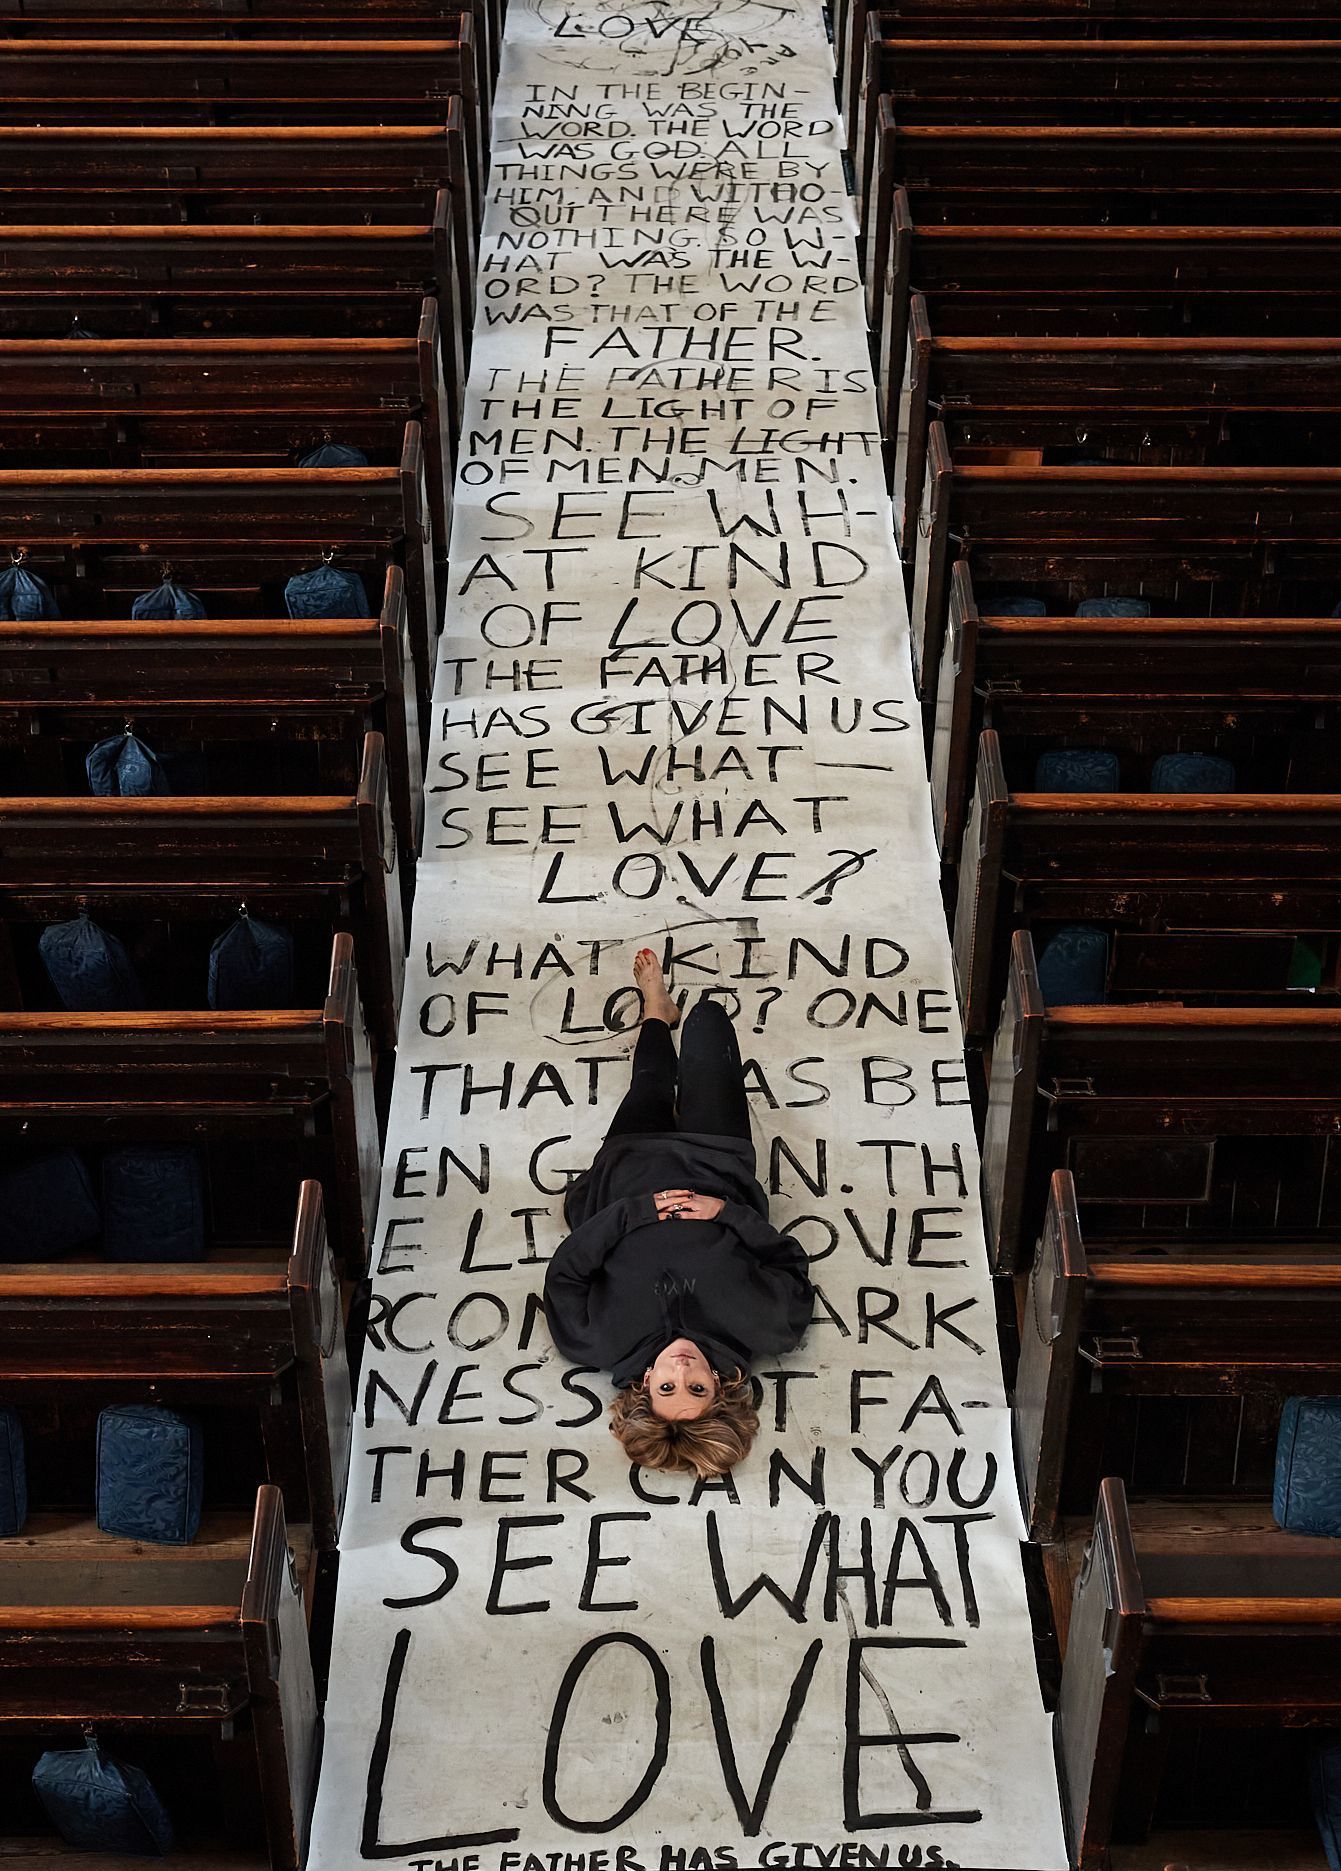 LOVE
IN THE BEGIN-
NING WAS THE
WORD. THE WORD
WAS GOD. ALL
THINGS WERE BY
HIM. AND WITHO-
OUT THERE WAS
NOTHING. SO W-
HAT WAS THE W-
ORD? THE WORD
WAS THAT OF THE
FATHER.
THE FATHER IS
THE LIGHT OF
MEN. THE LIGHT
OF MEN. MEN.
SEE WH-
AT KIND
OF LOVE
THE FATHER
HAS GIVEN US
SEE WHAT —
SEE WHAT
LOVE?
WHAT KIND
OF LOVE? ONE
THAT AS BE
EN G N. TH
E LI OVE
RCOM ARK
NESS T FA-
THER CAN YOU
SEE WHAT
LOVE
THE FATHER HAS GIVEN US.